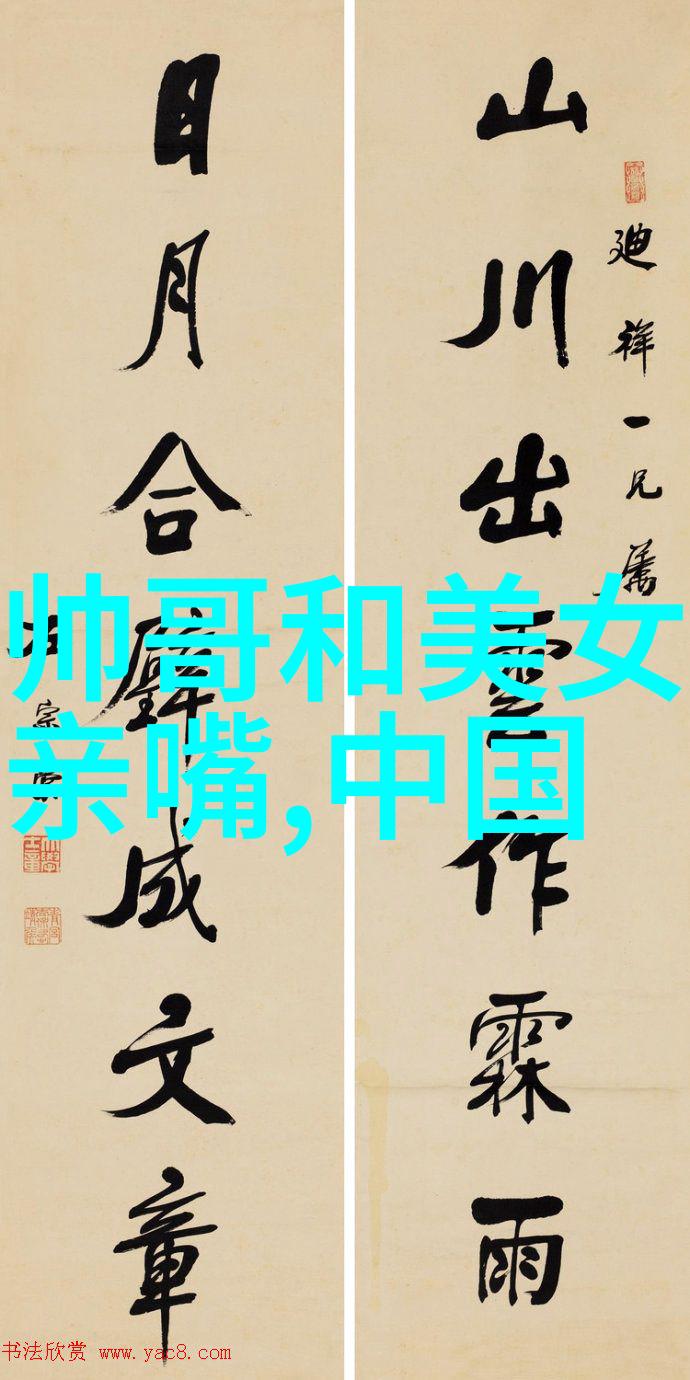 山川出雲作霖雨
廸祥一兄屬
日月合璧成文章
帅哥和美女
亲嘴,中国
书法欣赏 www.yac8.com